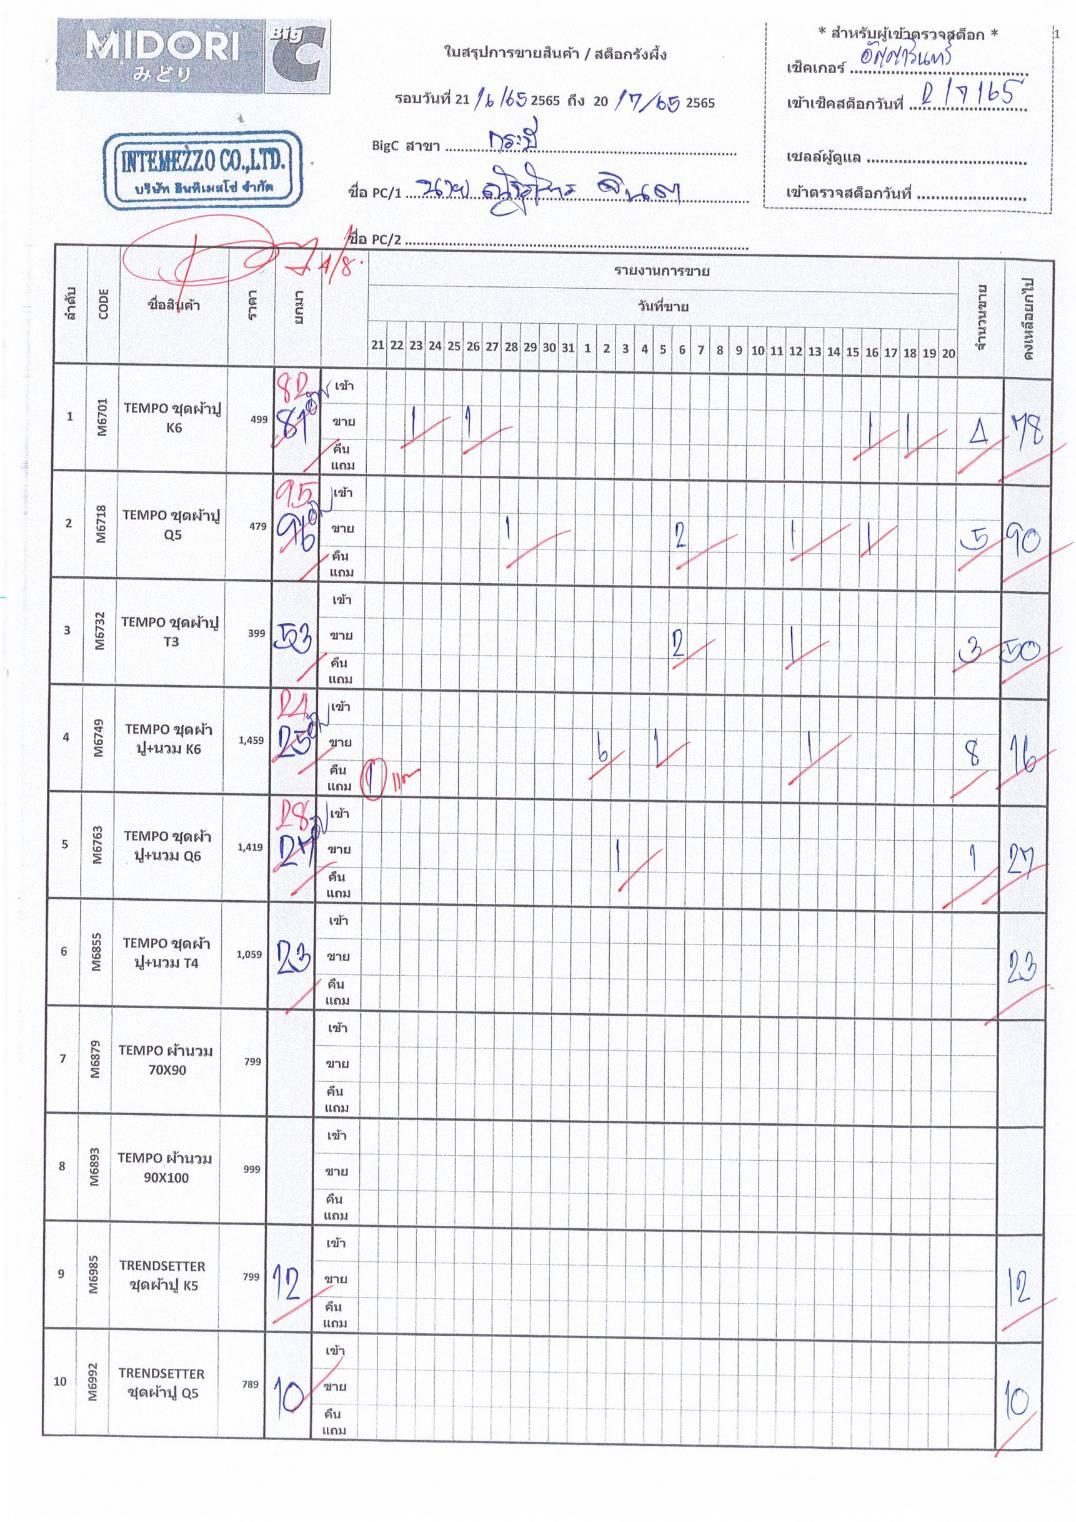 MIDORI
みどり
Big C
INTEMEZZO CO.,LTD.
บริษัท อินทิเมสโซ่ จำกัด
ใบสรุปการขายสินค้า / สต็อกรังผึ้ง
รอบวันที่ 21 /6/65 2565 ถึง 20 /7/65 2565
BigC สาขา กระบี่
ชื่อ PC/1 นาย
ชื่อ PC/2
* สำหรับผู้เข้าตรวจสต็อก *
1
เช็คเกอร์
เข้าเช็คสต็อกวันที่ 2/7/65
เซลล์ผู้ดูแล
เข้าตรวจสต็อกวันที่
4/8
ลำดับ CODE ชื่อสินค้า ราคา ยกมา รายงานการขาย จำนวนขาย คงเหลือยกไป
วันที่ขาย
21 22 23 24 25 26 27 28 29 30 31 1 2 3 4 5 6 7 8 9 10 11 12 13 14 15 16 17 18 19 20
82 เข้า
1 M6701 TEMPO ชุดผ้าปู K6 499 81 ขาย 1 1 1 1 4 78
คืน
แถม
95 เข้า
2 M6718 TEMPO ชุดผ้าปู Q5 479 96 ขาย 1 2 1 1 5 90
คืน
แถม
เข้า
3 M6732 TEMPO ชุดผ้าปู T3 399 53 ขาย 2 1 3 50
คืน
แถม
24 เข้า
4 M6749 TEMPO ชุดผ้าปู+นวม K6 1,459 25 ขาย 6 1 1 8 16
คืน
แถม 1
28 เข้า
5 M6763 TEMPO ชุดผ้าปู+นวม Q6 1,419 27 ขาย 1 1 27
คืน
แถม
เข้า
6 M6855 TEMPO ชุดผ้าปู+นวม T4 1,059 23 ขาย 23
คืน
แถม
เข้า
7 M6879 TEMPO ผ้านวม 70X90 799 ขาย
คืน
แถม
เข้า
8 M6893 TEMPO ผ้านวม 90X100 999 ขาย
คืน
แถม
เข้า
9 M6985 TRENDSETTER ชุดผ้าปู K5 799 12 ขาย 12
คืน
แถม
เข้า
10 M6992 TRENDSETTER ชุดผ้าปู Q5 789 10 ขาย 10
คืน
แถม